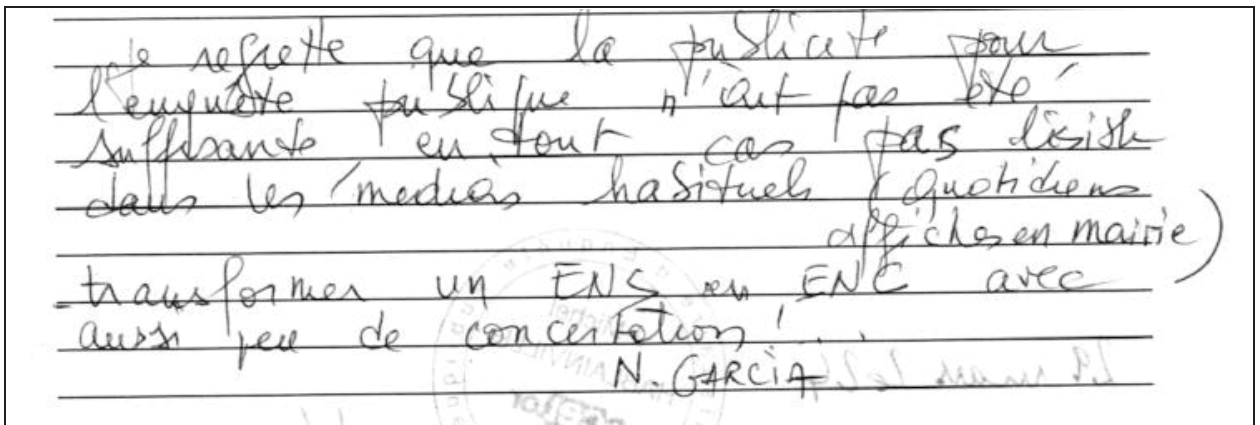 Je regrette que la publicité pour
l'enquête publique n'ait pas été
suffisante en tout cas pas lisible
dans les médias habituels (quotidiens
affiches en mairie)
- transformer un ENS en ENC avec
aussi peu de concertation! ...
N. GARCIA